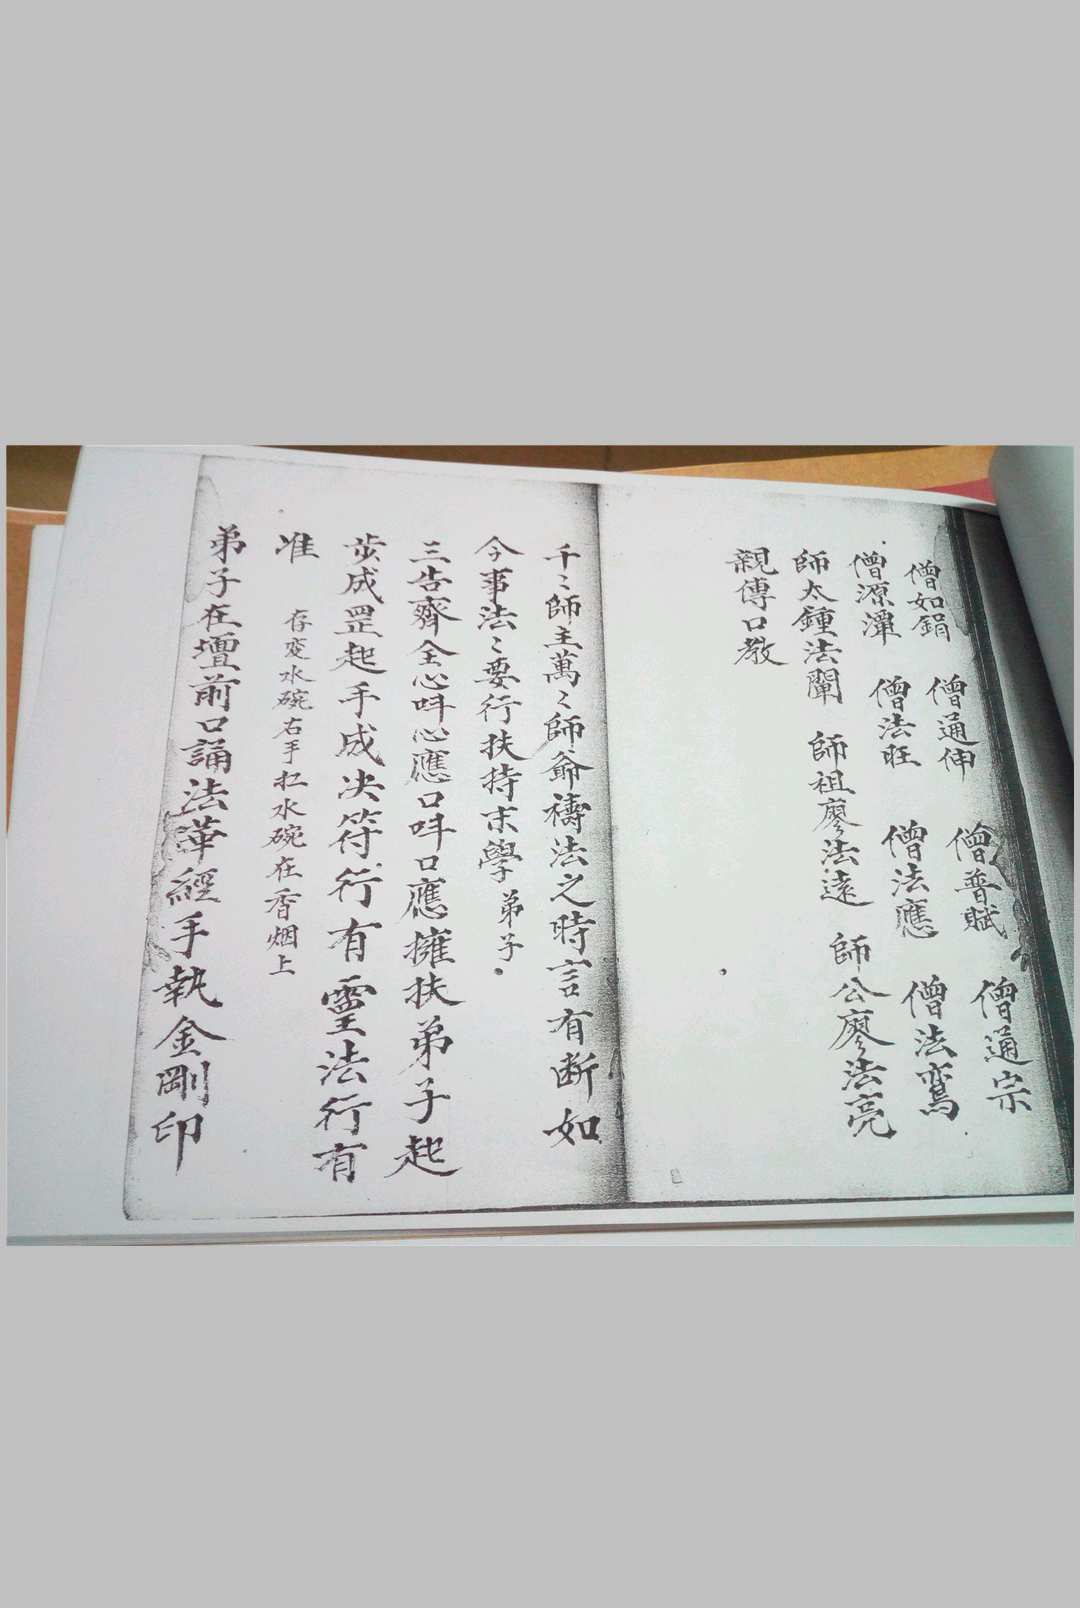 僧如鋗 僧通伸 僧普賦 僧通宗
僧源潭 僧法旺 僧法應 僧法鸞
師太鍾法闡 師祖廖法遠 師公廖法亮
親傳口教
千〻師主萬〻師爺禱法之時言有断如
今事法〻要行扶持末學弟子
三告齊全心呌心應口呌口應擁扶弟子起
步成罡起手成决符行有靈法行有
准 存变水碗右手扛水碗在香烟上
弟子在壇前口誦法華經手執金剛印